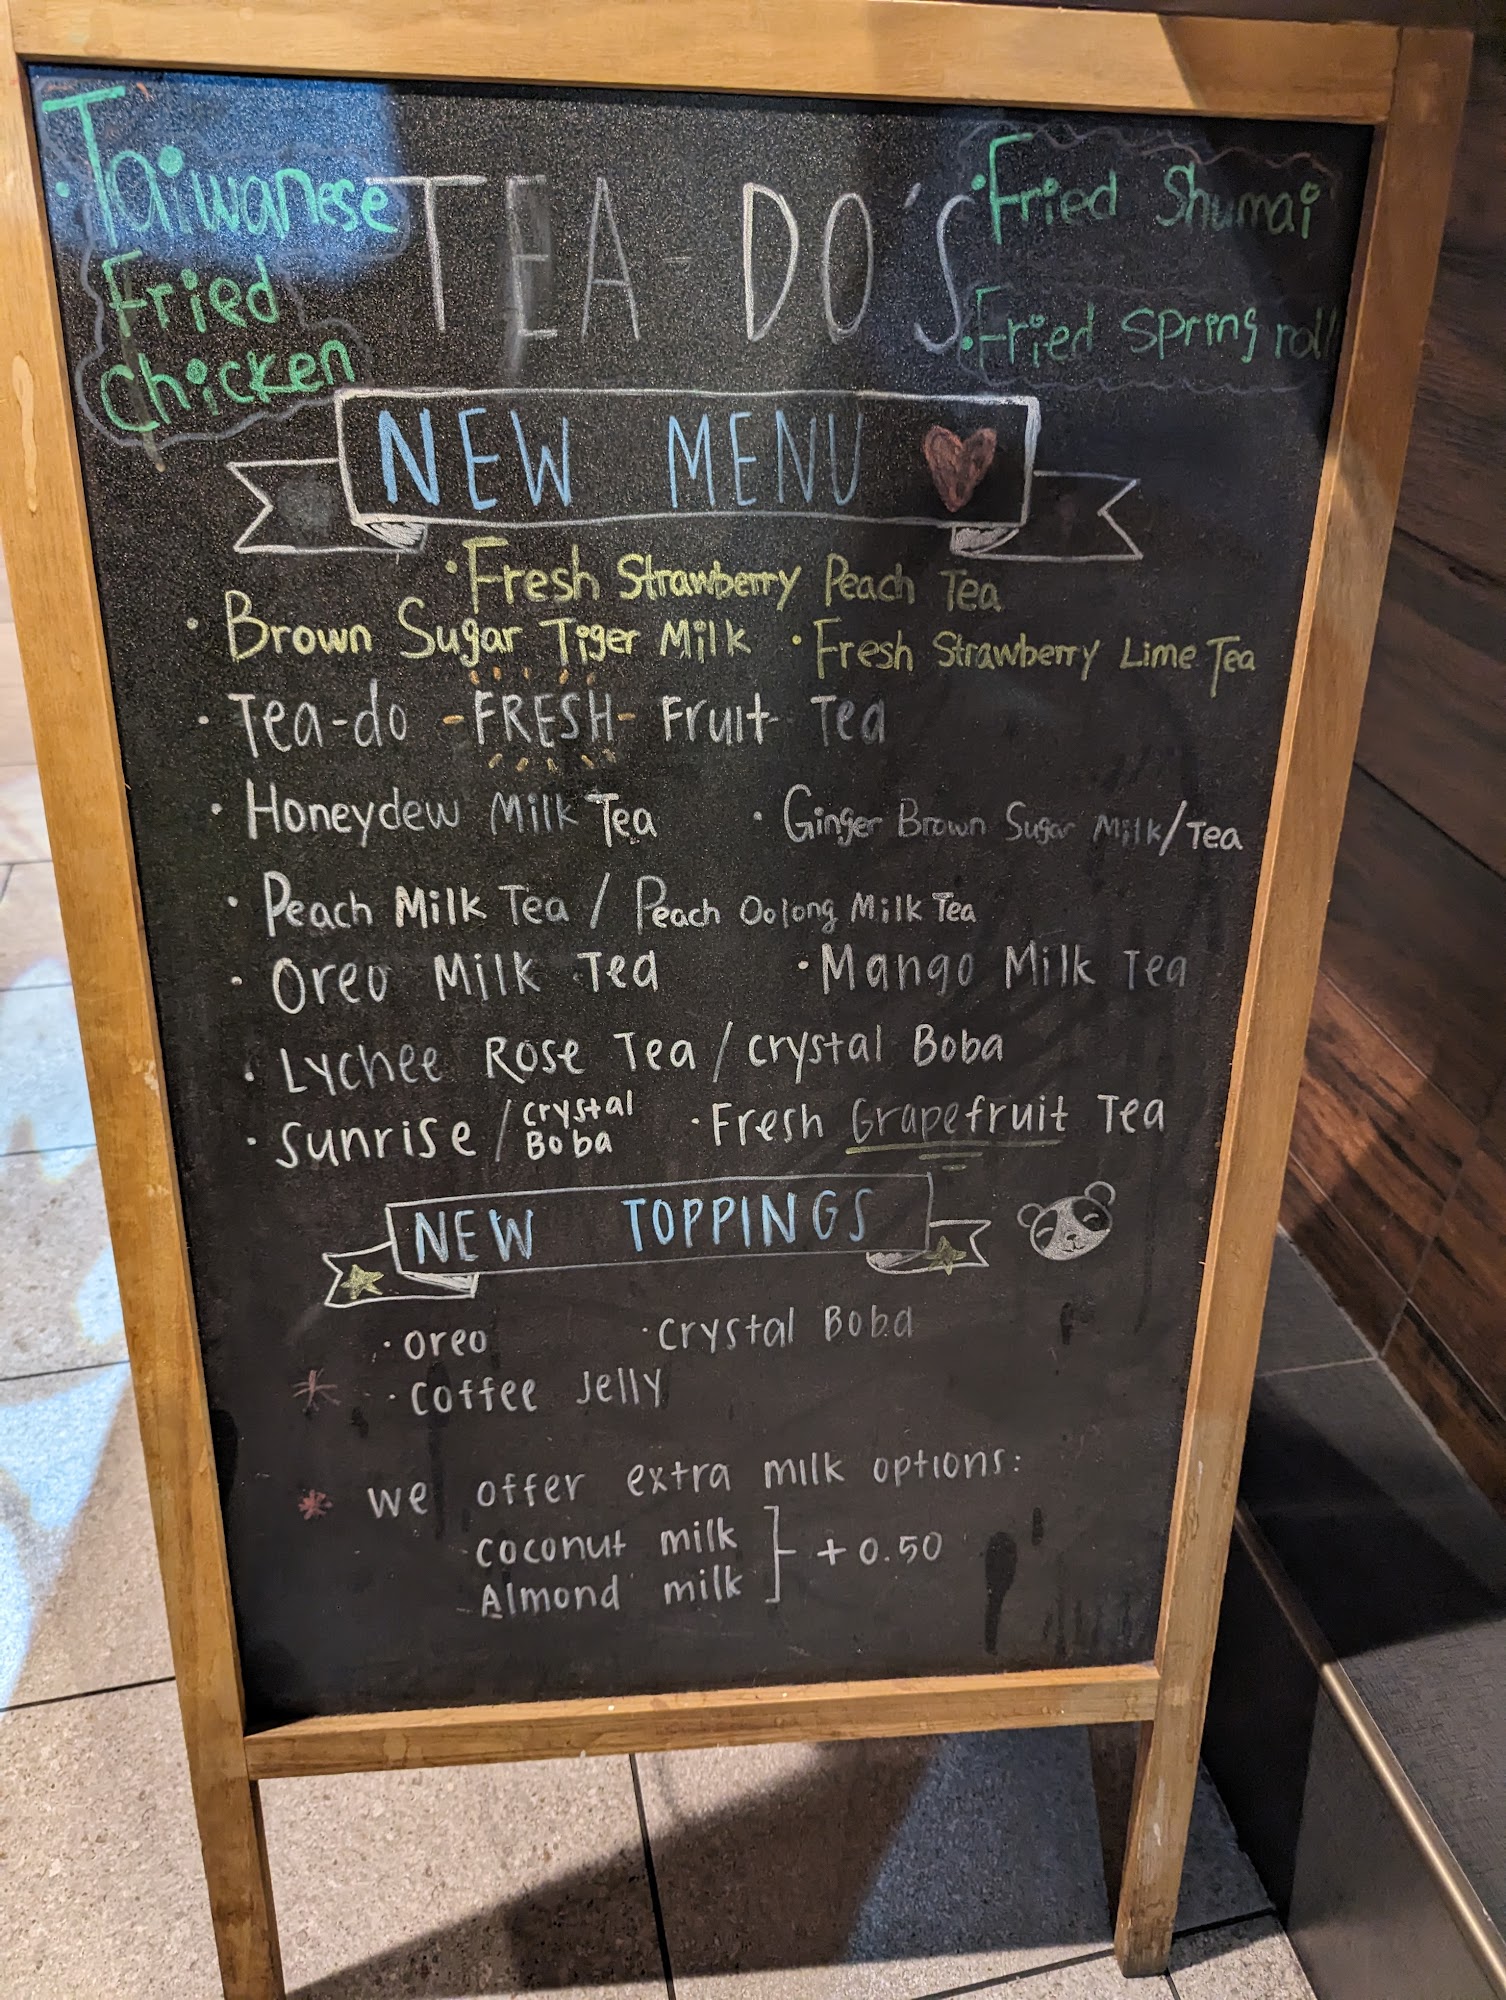 · Taiwanese
Fried
Chicken
TEA-DO'S
· Fried Shumai
· Fried Spring roll
NEW MENU
· Fresh Strawberry Peach Tea
· Brown Sugar Tiger Milk · Fresh Strawberry Lime Tea
· Tea-do -FRESH- Fruit Tea
· Honeydew Milk Tea · Ginger Brown Sugar Milk/Tea
· Peach Milk Tea / Peach Oolong Milk Tea
· Oreo Milk Tea · Mango Milk Tea
· Lychee Rose Tea / crystal Boba
· Sunrise / crystal Boba · Fresh Grapefruit Tea
NEW TOPPINGS
· oreo · crystal Boba
* · coffee Jelly
* we offer extra milk options:
coconut milk
Almond milk
+ 0.50